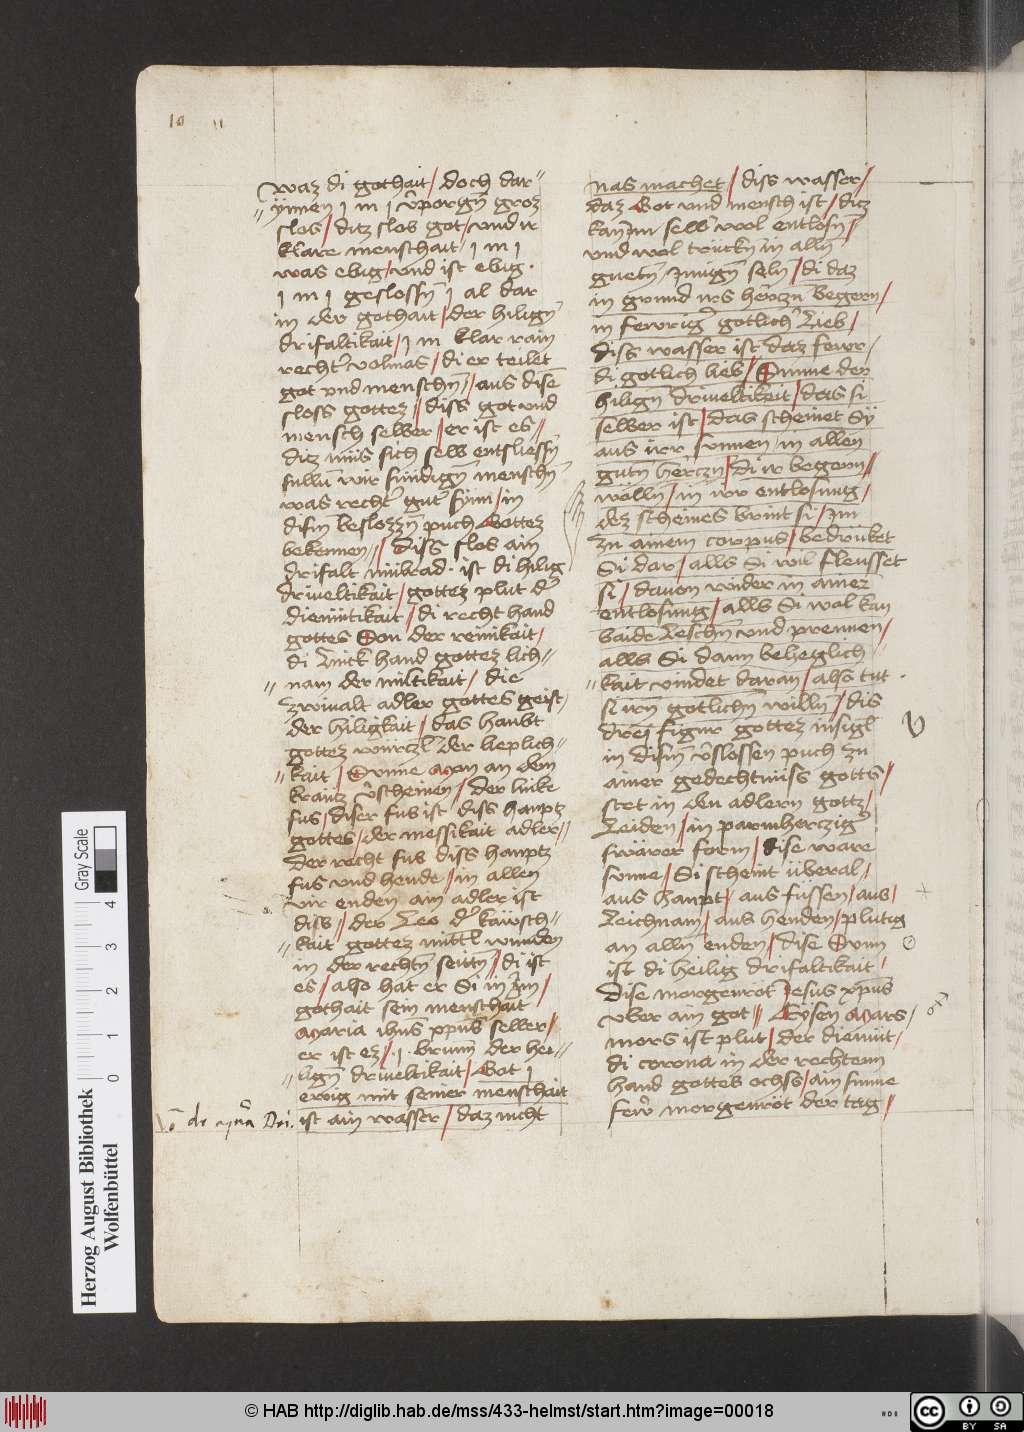 10 11
waz di gothait / doch dar//
// ÿnnen ꝩ in ꝩ v̂porgn̄ groz
slos / ditz slos got / vnd ir
klare menschait / ꝩ in ꝩ
was ebig / vnd ist ebig .
ꝩ in ꝩ geslossn̄ ꝩ al dar
in der gothait / der hilign̄
drifaltikait / ꝩ in klar rain
recht' volmas / di er teilet
got vnd menschn̄ // aus dise
sloss gottez // diss got vnd
mensch selber / er ist es //
ditz mus sich selb entsliessn̄
sullū wir sundign̄ menschn̄
was recht' gut' synn / in
disin beslozzn puch Gottez
bekennen // Diss slos ain
drifalt
driueltikait / gottez plut d'
diemutikait / di recht hand
gottes Son der reinikait /
di Linck hand gottez lich//
// nam der miltikait / die
zwiualt adler gottes geist /
der hiligkait / das haubt
gottez wurczl der lieplich//
// kait / Sunne Mon an dem
kräutz v̂scheinen / der linke
fus / diser fus ist diss haupt
gottes / der messikait adler //
der recht fus diss hauptz
fus vnd hende / in allen
vir enden am adler ist
diss // der Leo d' käusch//
// kait gottez mittl wunden
in der rechtn̄ seittn̄ / di ist
es / also hat er Si in ym /
gothait sein menschait
Maria ihus xpus selber /
er ist ez // .ꝩ. brunn der hei//
// lign̄ driueltikait / Got ꝩ
ewig mit seiner menschait
ist ain wasser / daz nicht
nas machet / diss wasser /
daz Got vnd mensch ist / ditz
kan im selb' wol entlosn̄ //
vnd wol truckn̄ in alln̄
guetn̄ Innign̄ seln̄ / di daz
in grund irs herczn̄ begern /
in fewrig' gotlich' Lieb /
diss wasser ist daz fewr /
di gotlich lieb / Sunne der
hilign̄ driueltikeit / das si
selber ist / das scheinet Sÿ
aus irr sunnen / in allen
gutn̄ herczn̄ / di ir begern //
wölln̄ / in irr entlosung /
dez scheines brint si / im
zu ainem corpus / bedrucket
Si dar / alls Si wil fleusset
si / dauon wider in ainez
entlosung / alls Si wol kan
baide Leschn̄ vnd prennen /
alls Si dann beheglich//
// kait vindet daran / alss tut .
si irn̄ gotlichn̄ willn̄ / dis
drei figur gottez insigl
in disin v̂slossen puch zu
ainer gedechtniss gotts /
stet in den adlern gottz /
Leiden / in parmherczig'
swärer form / Dise ware
sunne / Si scheint überal /
aus haupt / aus füssen / aus /
Leichnam / aus henden / plutig
an alln̄ enden / dise Sunn
ist di heilig drifaltikait /
Dise morgenröt Jesus xpus
vber ain got // Eysen Mars /
mors ist plut / der diemüt /
di corona in der rechtenn
hand gottes ochss / am sunne
few̄ morgenröt der tag /
Herzog August Bibliothek
Wolfenbüttel
Gray Scale
0 1 2 3 4
© HAB http://diglib.hab.de/mss/433-helmst/start.htm?image=00018
cc BY SA